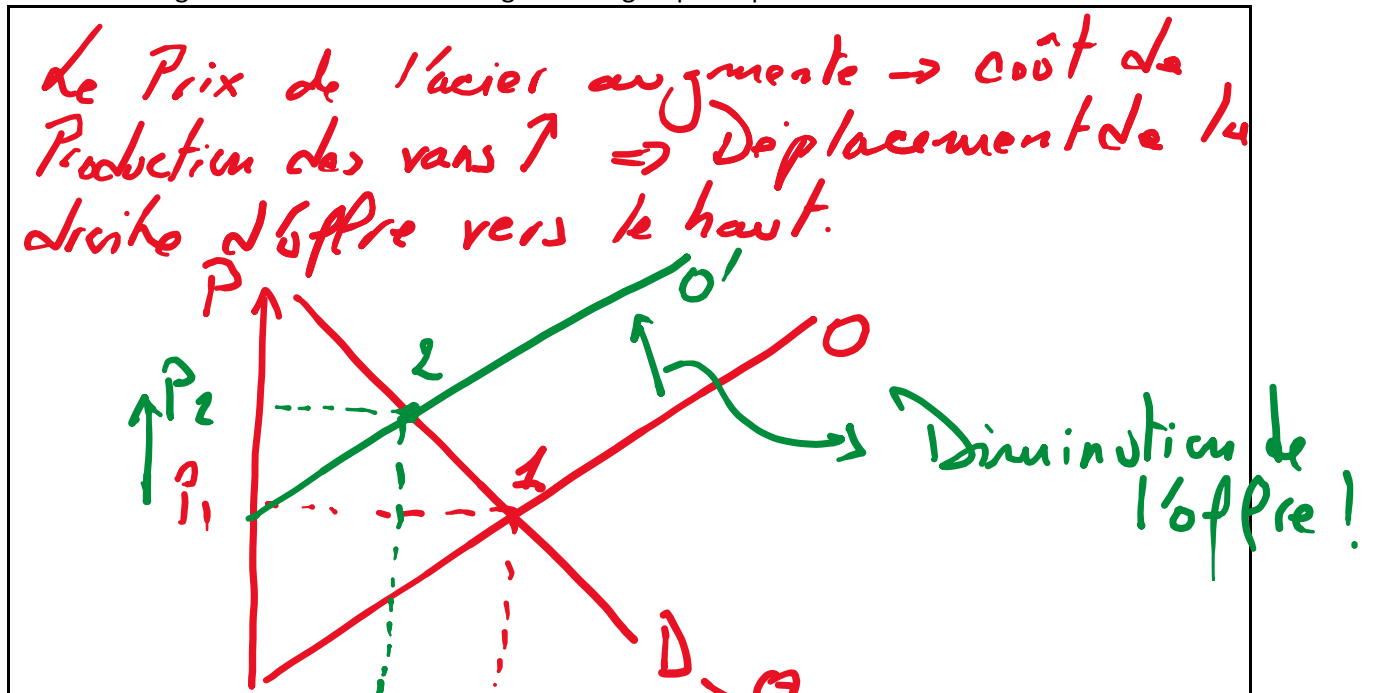 Le Prix de l'acier augmente → coût de
Production des vans ↑ ⇒ Déplacement de la
droite d'offre vers le haut.
P
O'
O
2
P2
1
P1
Diminution de
l'offre !
D